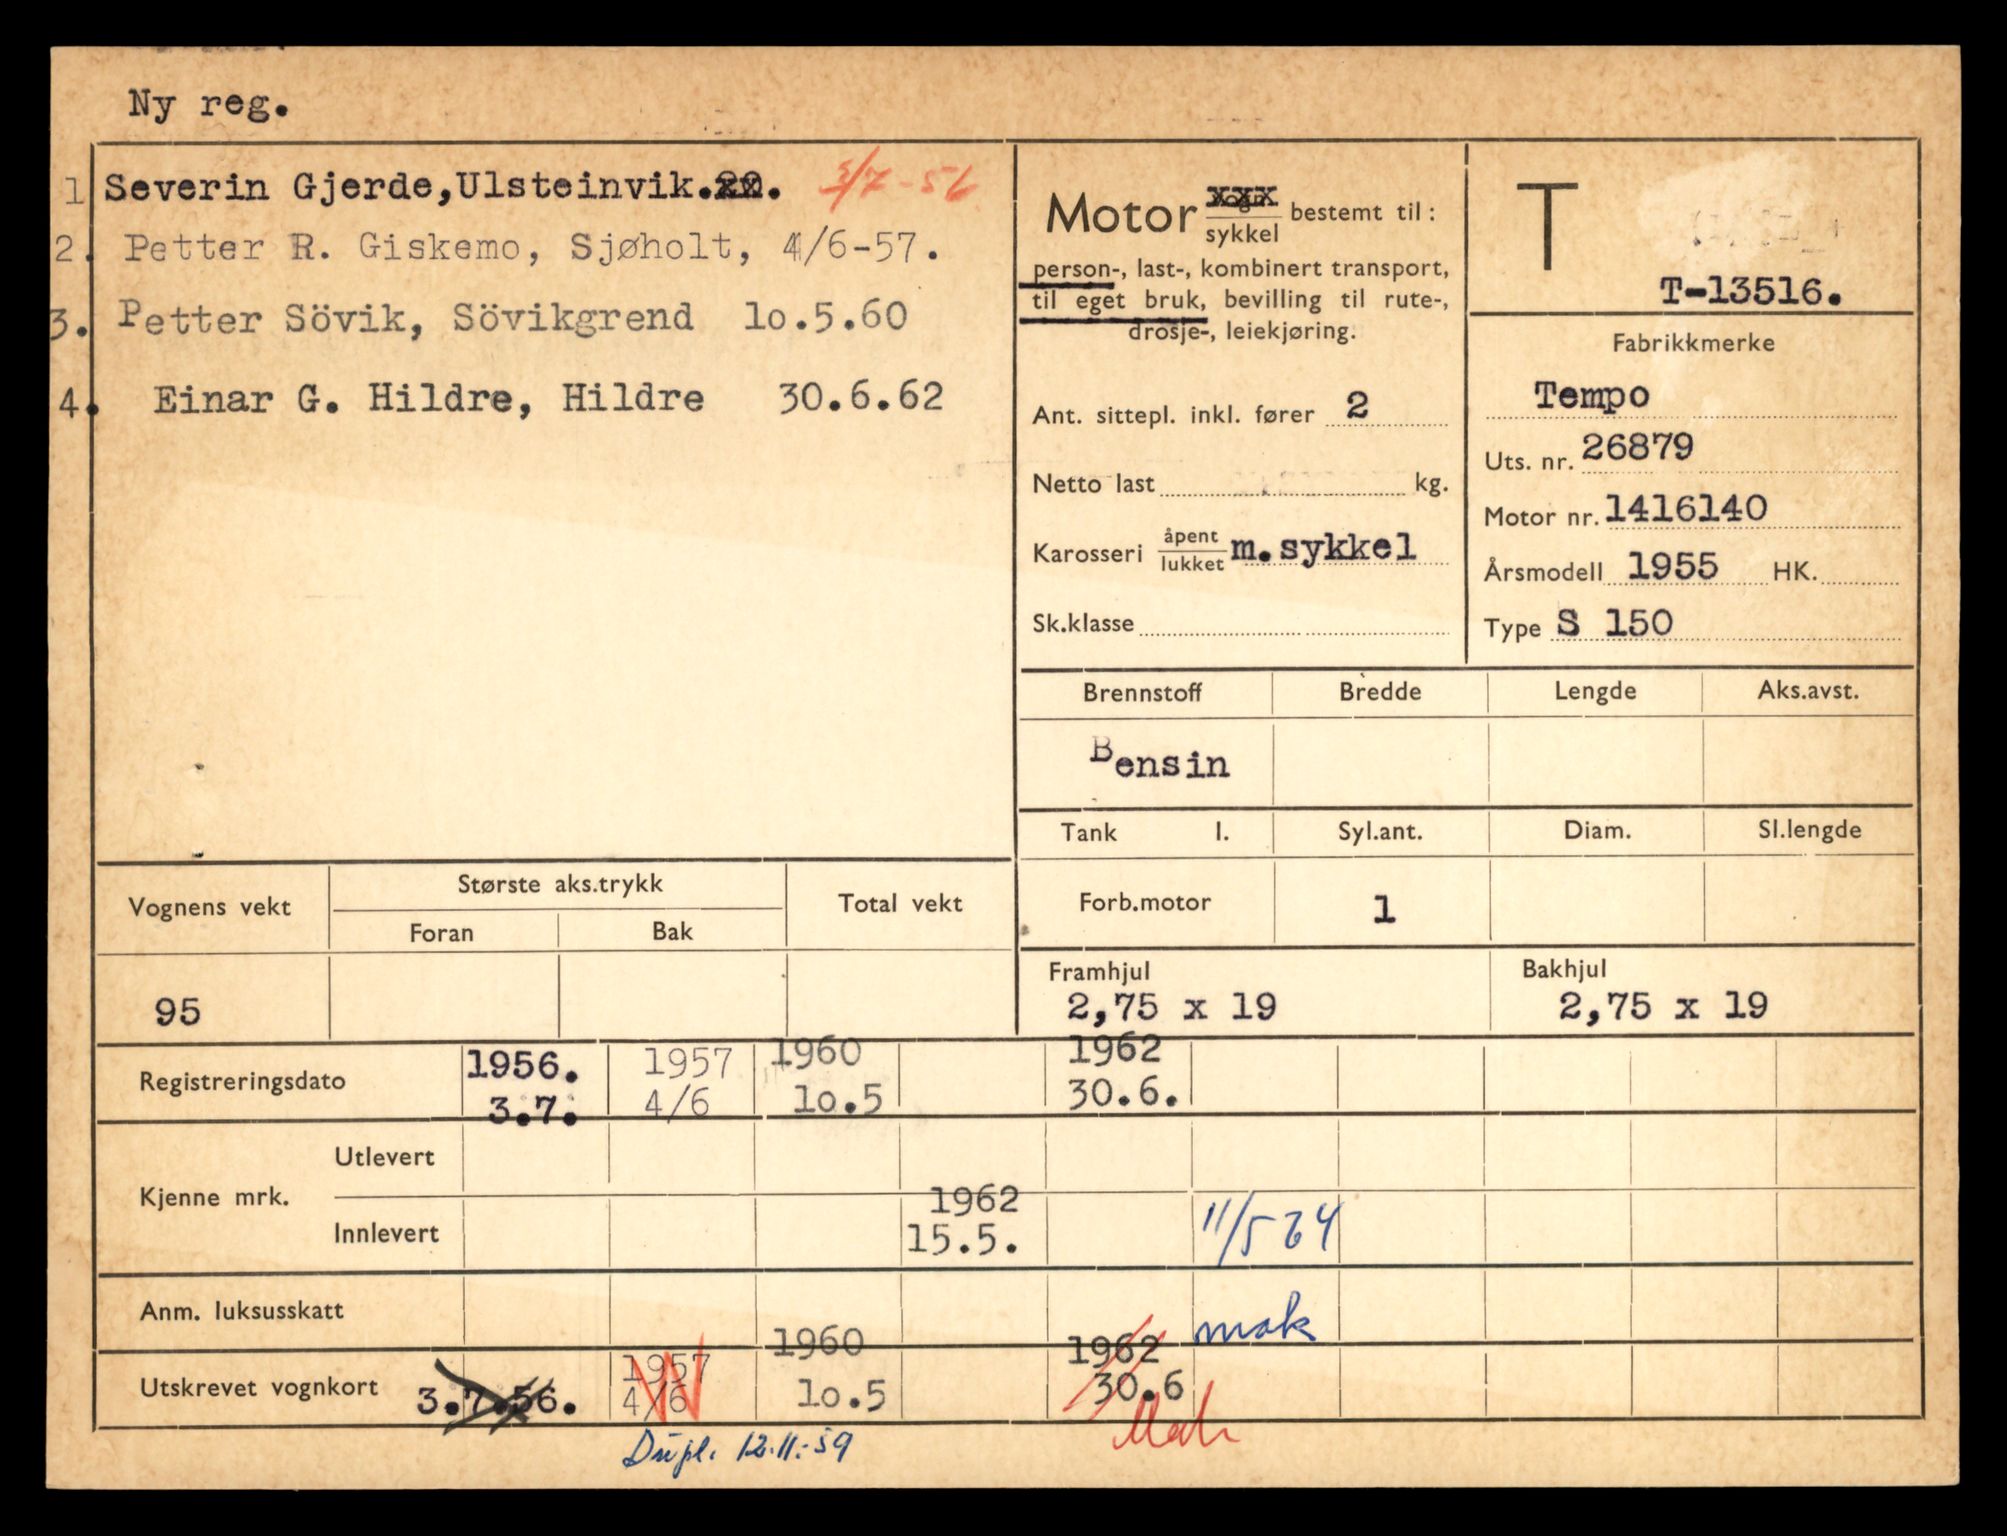 Ny reg.
1 Severin Gjerde, Ulsteinvik. 3/7-56
2. Petter R. Giskemo, Sjøholt, 4/6-57.
3. Petter Sövik, Sövikgrend 10.5.60
4. Einar G. Hildre, Hildre 30.6.62
Motor vogn/sykkel bestemt til:
person-, last-, kombinert transport,
til eget bruk, bevilling til rute-,
drosje-, leiekjøring.
Ant. sittepl. inkl. fører 2
Netto last kg.
Karosseri åpent/lukket m.sykkel
Sk.klasse
T
T-13516.
Fabrikkmerke
Tempo
Uts. nr. 26879
Motor nr. 1416140
Årsmodell 1955 HK.
Type S 150
Brennstoff Bredde Lengde Aks.avst.
Bensin
Tank l. Syl.ant. Diam. Sl.lengde
Forb.motor 1
Framhjul Bakhjul
2,75 x 19 2,75 x 19
Vognens vekt Største aks.trykk Total vekt
Foran Bak
95
Registreringsdato 1956. 1957 1960 1962
3.7. 4/6 10.5 30.6.
Kjenne mrk. Utlevert
Innlevert 1962 11/5 64
15.5.
Anm. luksusskatt mak
Utskrevet vognkort 3.7.56. 1957 1960 1962
4/6 10.5 30.6
Dupl. 12.11.-59